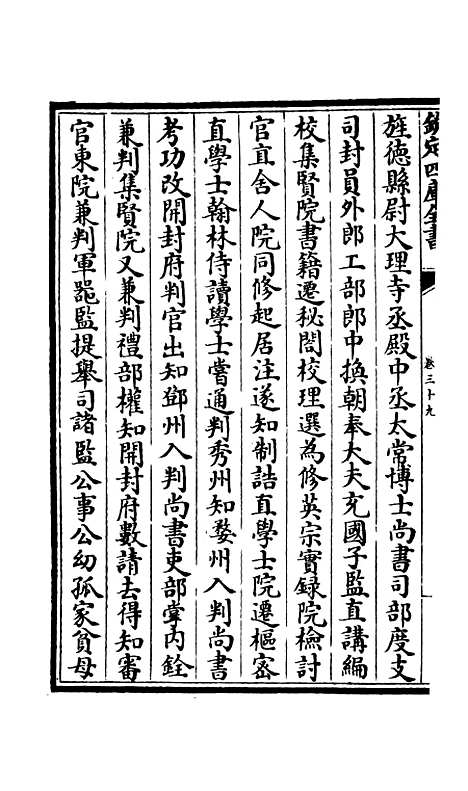 欽定四庫全書
卷三十九
旌德縣尉大理寺丞殿中丞太常博士尚書司部度支
司封員外郎工部郎中換朝奉大夫充國子監直講編
校集賢院書籍遷秘閣校理選為修英宗實録院檢討
官直舍人院同修起居注遂知制誥直學士院遷樞密
直學士翰林侍讀學士嘗通判秀州知婺州入判尚書
考功改開封府判官出知鄧州入判尚書吏部掌内銓
兼判集賢院又兼判禮部權知開封府數請去得知審
官東院兼判軍噐監提舉司諸監公事公幼孤家貧母